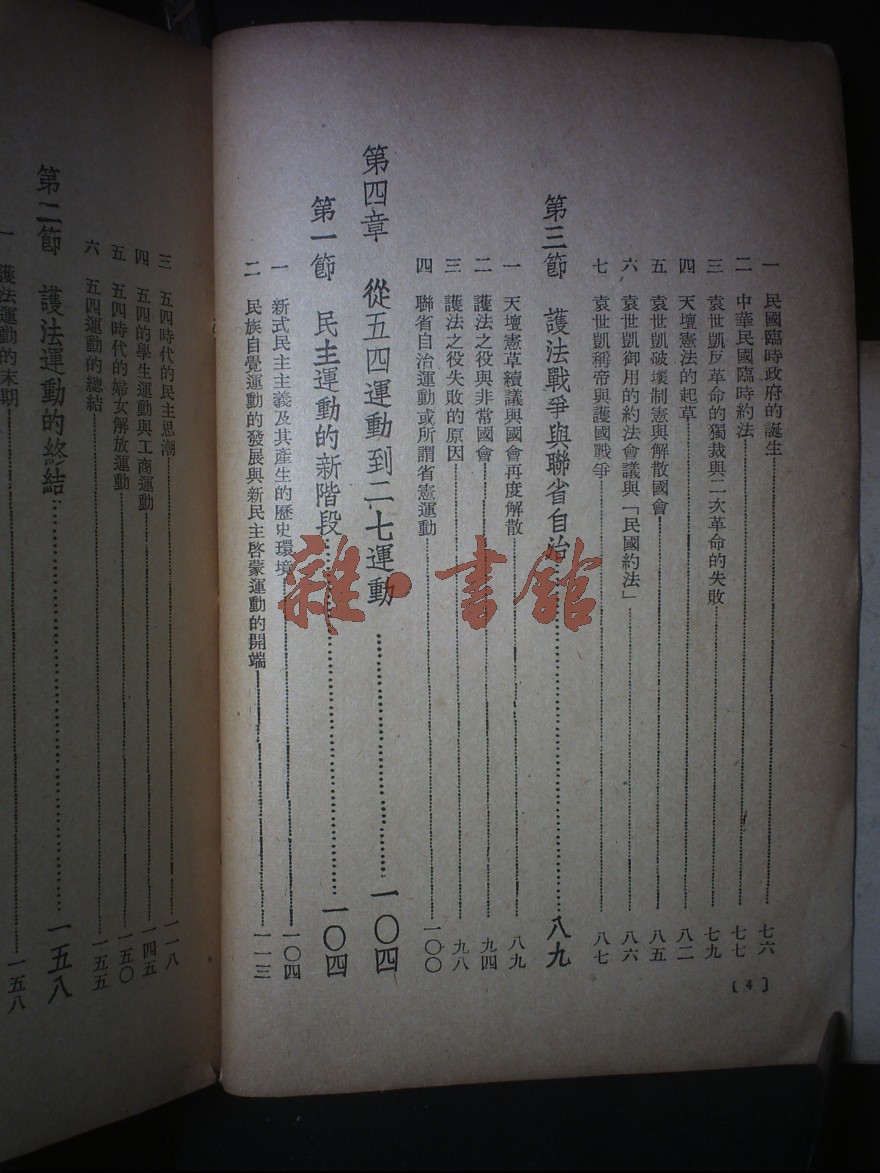 一 民國臨時政府的誕生……七六
二 中華民國臨時約法……七七
三 袁世凱反革命的獨裁與二次革命的失敗……七九
四 天壇憲法的起草……八二
五 袁世凱破壞制憲與解散國會……八五
六 袁世凱御用的約法會議與「民國約法」……八六
七 袁世凱稱帝與護國戰爭……八七
第三節 護法戰爭與聯省自治……八九
一 天壇憲草續議與國會再度解散……八九
二 護法之役與非常國會……九四
三 護法之役失敗的原因……九八
四 聯省自治運動或所謂省憲運動……一〇〇
第四章 從五四運動到二七運動……一〇四
第一節 民主運動的新階段……一〇四
一 新式民主主義及其產生的歷史環境……一〇四
二 民族自覺運動的發展與新民主啓蒙運動的開端……一一三
[4]
三 五四時代的民主思潮……一一八
四 五四的學生運動與工商運動……一四五
五 五四時代的婦女解放運動……一五〇
六 五四運動的總結……一五五
第二節 護法運動的終結……一五八
一 護法運動的末期……一五八
雜·書館